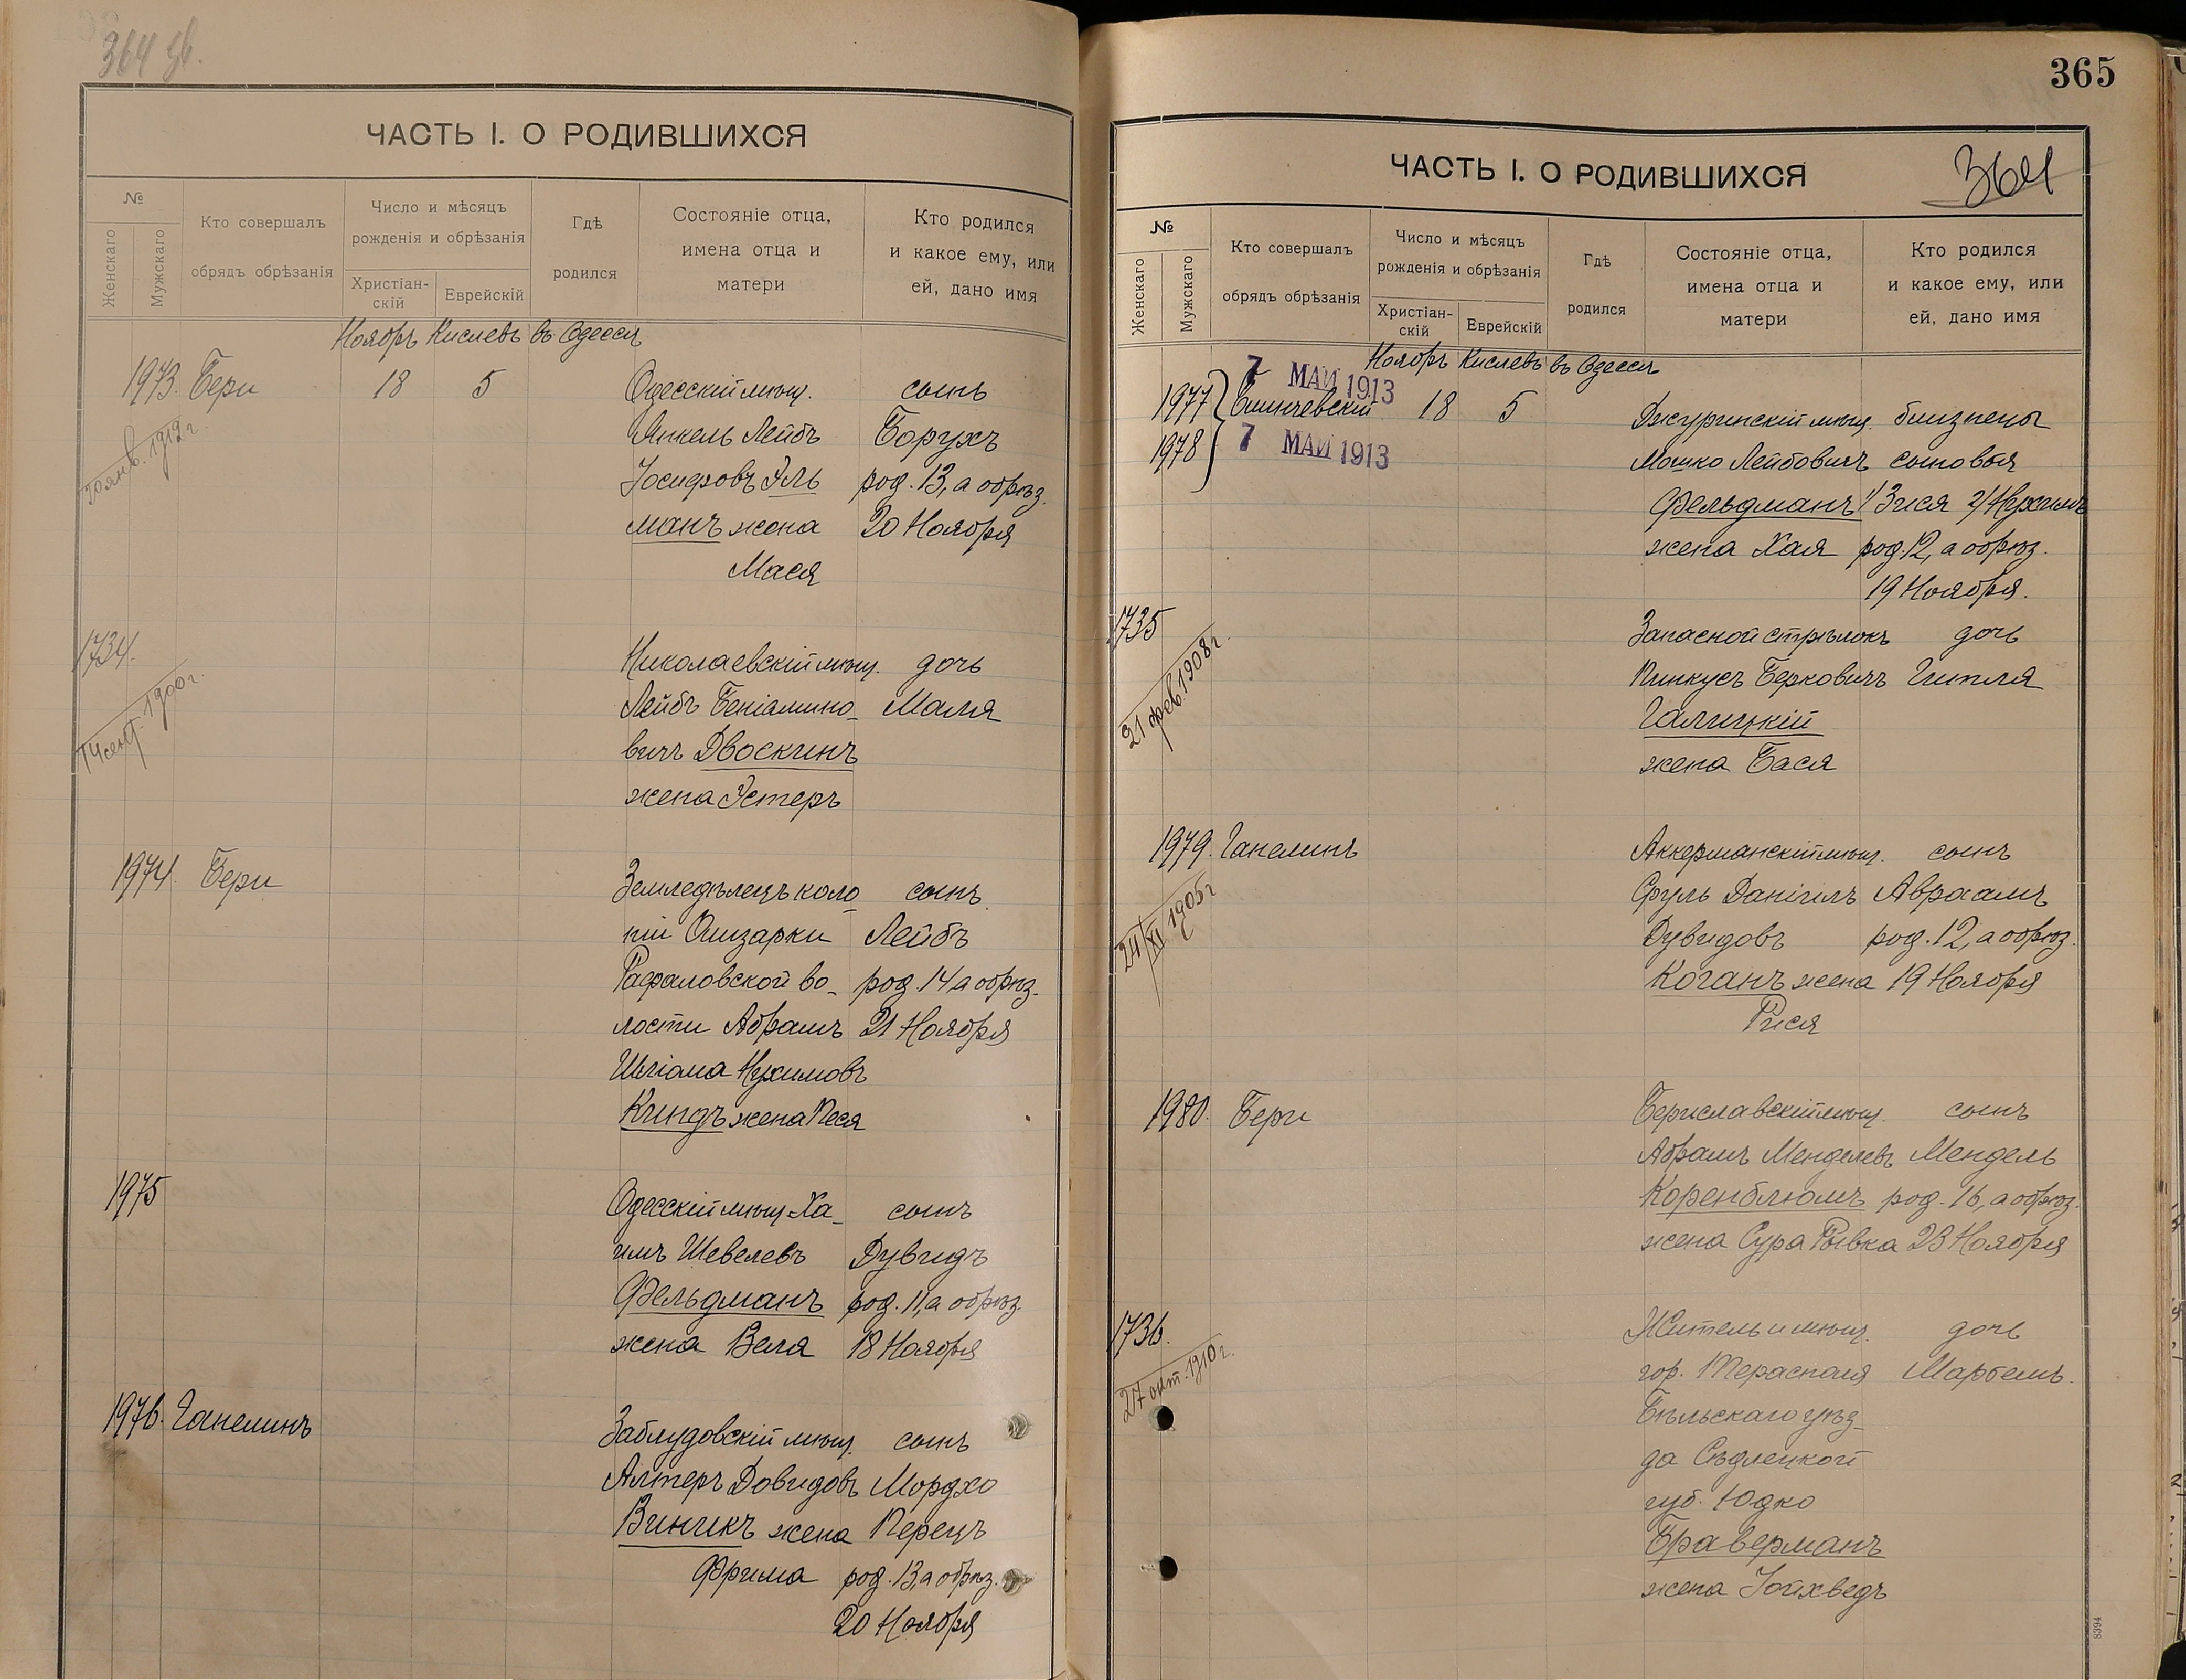 364 об.
ЧАСТЬ I. О РОДИВШИХСЯ
№
Женскаго
Мужскаго
Кто совершалъ
обрядъ обрѣзанія
Число и мѣсяцъ
рожденія и обрѣзанія
Христіан-
скій
Еврейскій
Гдѣ
родился
Состояніе отца,
имена отца и
матери
Кто родился
и какое ему, или
ей, дано имя
Ноябрь Кислевъ въ Одессѣ
1973. Бери 18 5 Одесскій мѣщ. сынъ
Янкель Лейбъ Борухъ
Іосифовъ Эль род. 13, а обрѣз.
манъ жена 20 Ноября
Мася
20 янв. 1912 г.
1734. Николаевскій мѣщ. дочь
Лейбъ Беніамино- Маля
вичъ Двоскинъ
жена Эстеръ
14 сент. 1900 г.
1974. Бери Земледѣлецъ коло сынъ
ніи Лейбъ
Рафаловской во- род. 14 а обрѣз.
лости Абрамъ 21 Ноября
Шліома Нухимовъ
Киндъ жена Песя
1975 Одесскій мѣщ. Ха- сынъ
имъ Шевелевъ Дувидъ
Фельдманъ род. 11, а обрѣз.
жена Веля 18 Ноября
1976. Ганелинъ Заблудовскій мѣщ. сынъ
Алтеръ Довидовъ Мордхо
Виникъ жена Перецъ
Фрима род. 13, а обрѣз.
20 Ноября
365
364
ЧАСТЬ I. О РОДИВШИХСЯ
№
Женскаго
Мужскаго
Кто совершалъ
обрядъ обрѣзанія
Число и мѣсяцъ
рожденія и обрѣзанія
Христіан-
скій
Еврейскій
Гдѣ
родился
Состояніе отца,
имена отца и
матери
Кто родился
и какое ему, или
ей, дано имя
Ноябрь Кислевъ въ Одессѣ
7 МАЙ 1913
1977 18 5 Джуринскій мѣщ. близнецы
7 МАЙ 1913
1978 Мошко Лейбовичъ сыновья
Фельдманъ 1/ Зися 2/ Нухимъ
жена Хая род. 12, а обрѣз.
19 Ноября.
1735 Запасной стрѣлокъ дочь
Пинкусъ Берковичъ Гитля
Галицкій
жена Бася
21 фев. 1908 г.
1979. Ганелинъ Аккерманскій мѣщ. сынъ
Сруль Даніилъ Авраамъ
Дувидовъ род. 12, а обрѣз.
Коганъ жена 19 Ноября
Рися
24/XI 1905 г
1980. Бери Бериславскій мѣщ. сынъ
Абрамъ Менделевъ Мендель
Коренблюмъ род. 16, а обрѣз.
жена Сура Рывка 23 Ноября
1736. Житель и мѣщ. дочь
гор. Тераспаля
Бѣльскаго уѣз-
да Сѣдлецкой
губ. Юдко
Браверманъ
жена Іойхведъ
27 окт. 1910 г.
8394